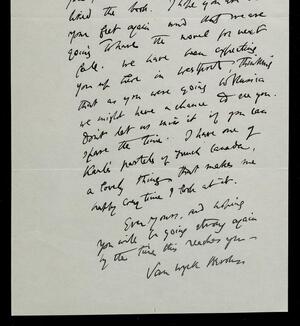 liked the book. I hope you are on
your feet again and that we are
going to have the novel for next
fall. We have been expecting
you up here in Westport, thinking
that as you were going to
we might have a chance to see you.
Don't let us miss it if you can
spare the time. I have one of
Karl's pastels of French Canada,
a lovely thing that makes me
happy every time I look at it.
Ever yours, and hoping
you will be going strong again
by the time this reaches you –
Van Wyck Brooks